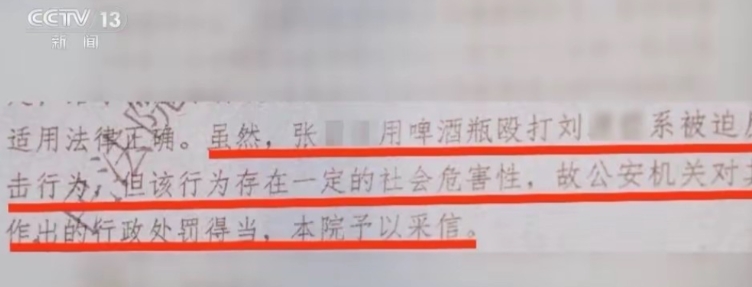 CCTV 13
新闻
适用法律正确。虽然，张 用啤酒瓶殴打刘 系被迫
击行为，但该行为存在一定的社会危害性，故公安机关对
作出的行政处罚得当，本院予以采信。